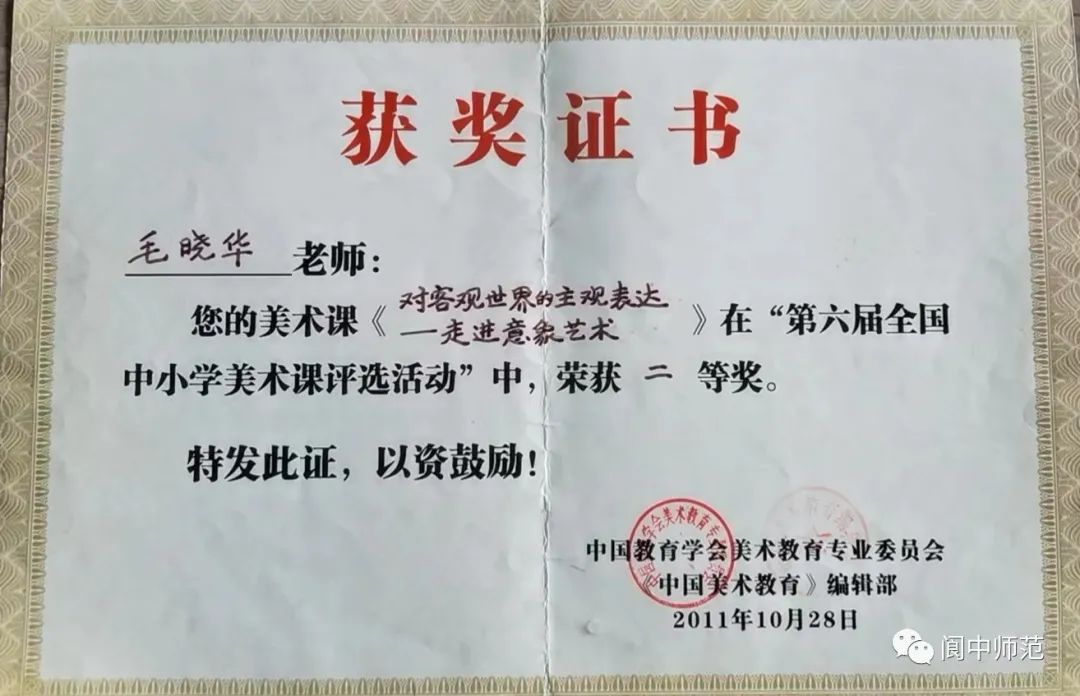 获奖证书
毛晓华 老师：
对客观世界的主观表达
您的美术课《 》在“第六届全国
—走进意象艺术
中小学美术课评选活动”中，荣获 二 等奖。
特发此证，以资鼓励！
中国教育学会美术教育专业委员会
《中国美术教育》编辑部
2011年10月28日
阆中师范